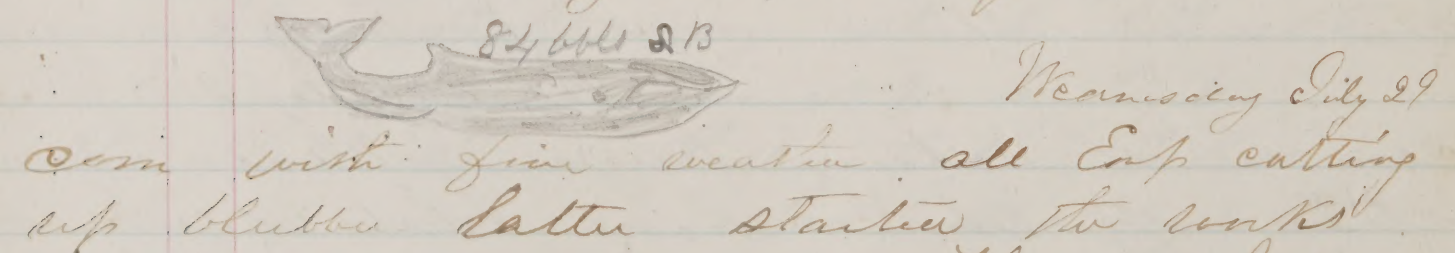 84 bbls
Wednesday July 29
com with fine weather all Emp cutting
up blubber latter started the works